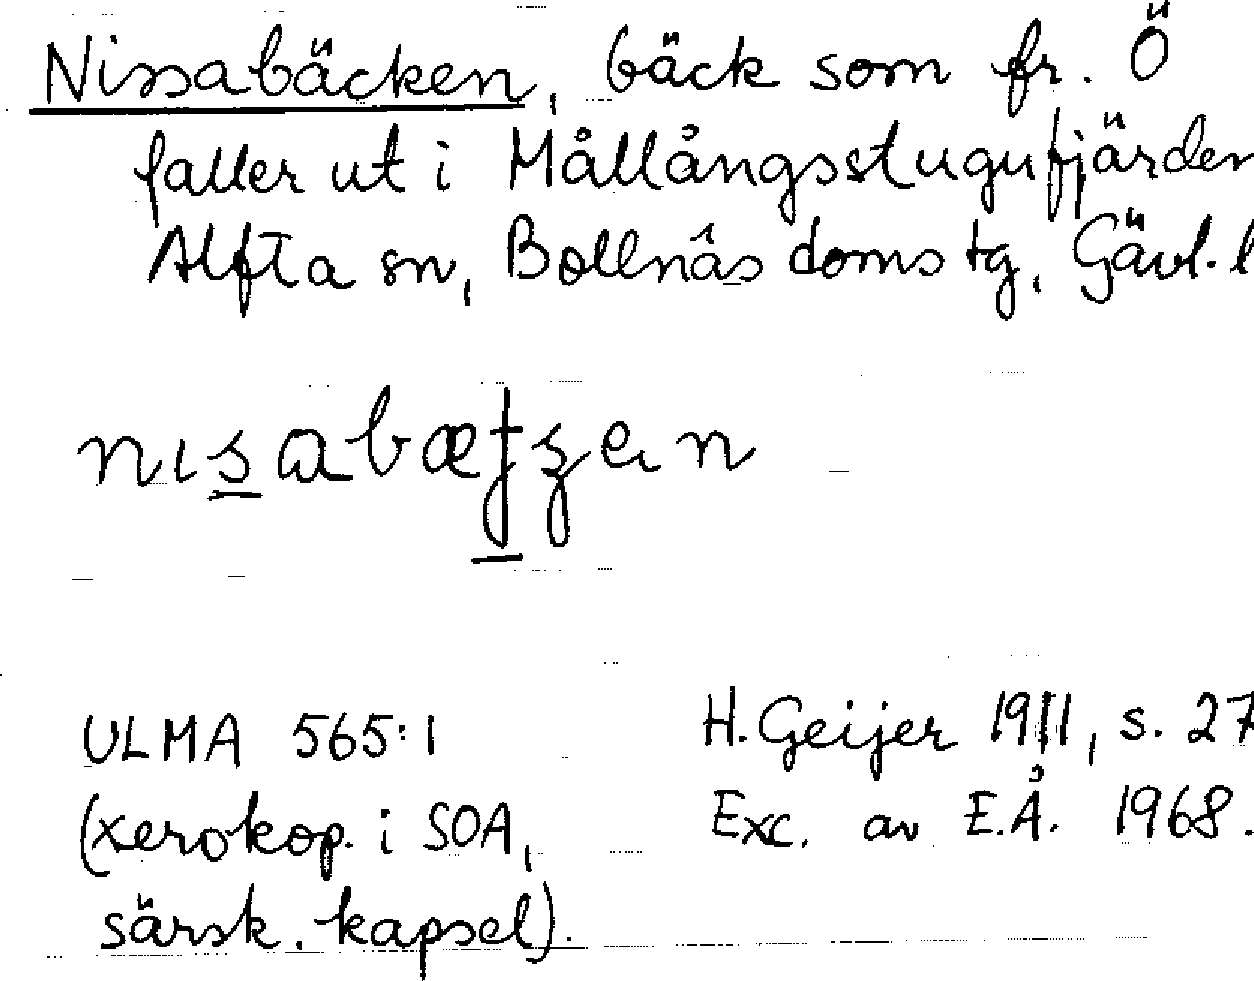 Nissabäcken, bäck som fr. Ö
faller ut i Mållångsstugufjärden
Alfta sn, Bollnäs doms tg, Gävl. l
ULMA 565:1
(xerokop. i SOA,
särsk. kapsel).
H. Geijer 1911, s. 27
Exc. av E.Å. 1968.